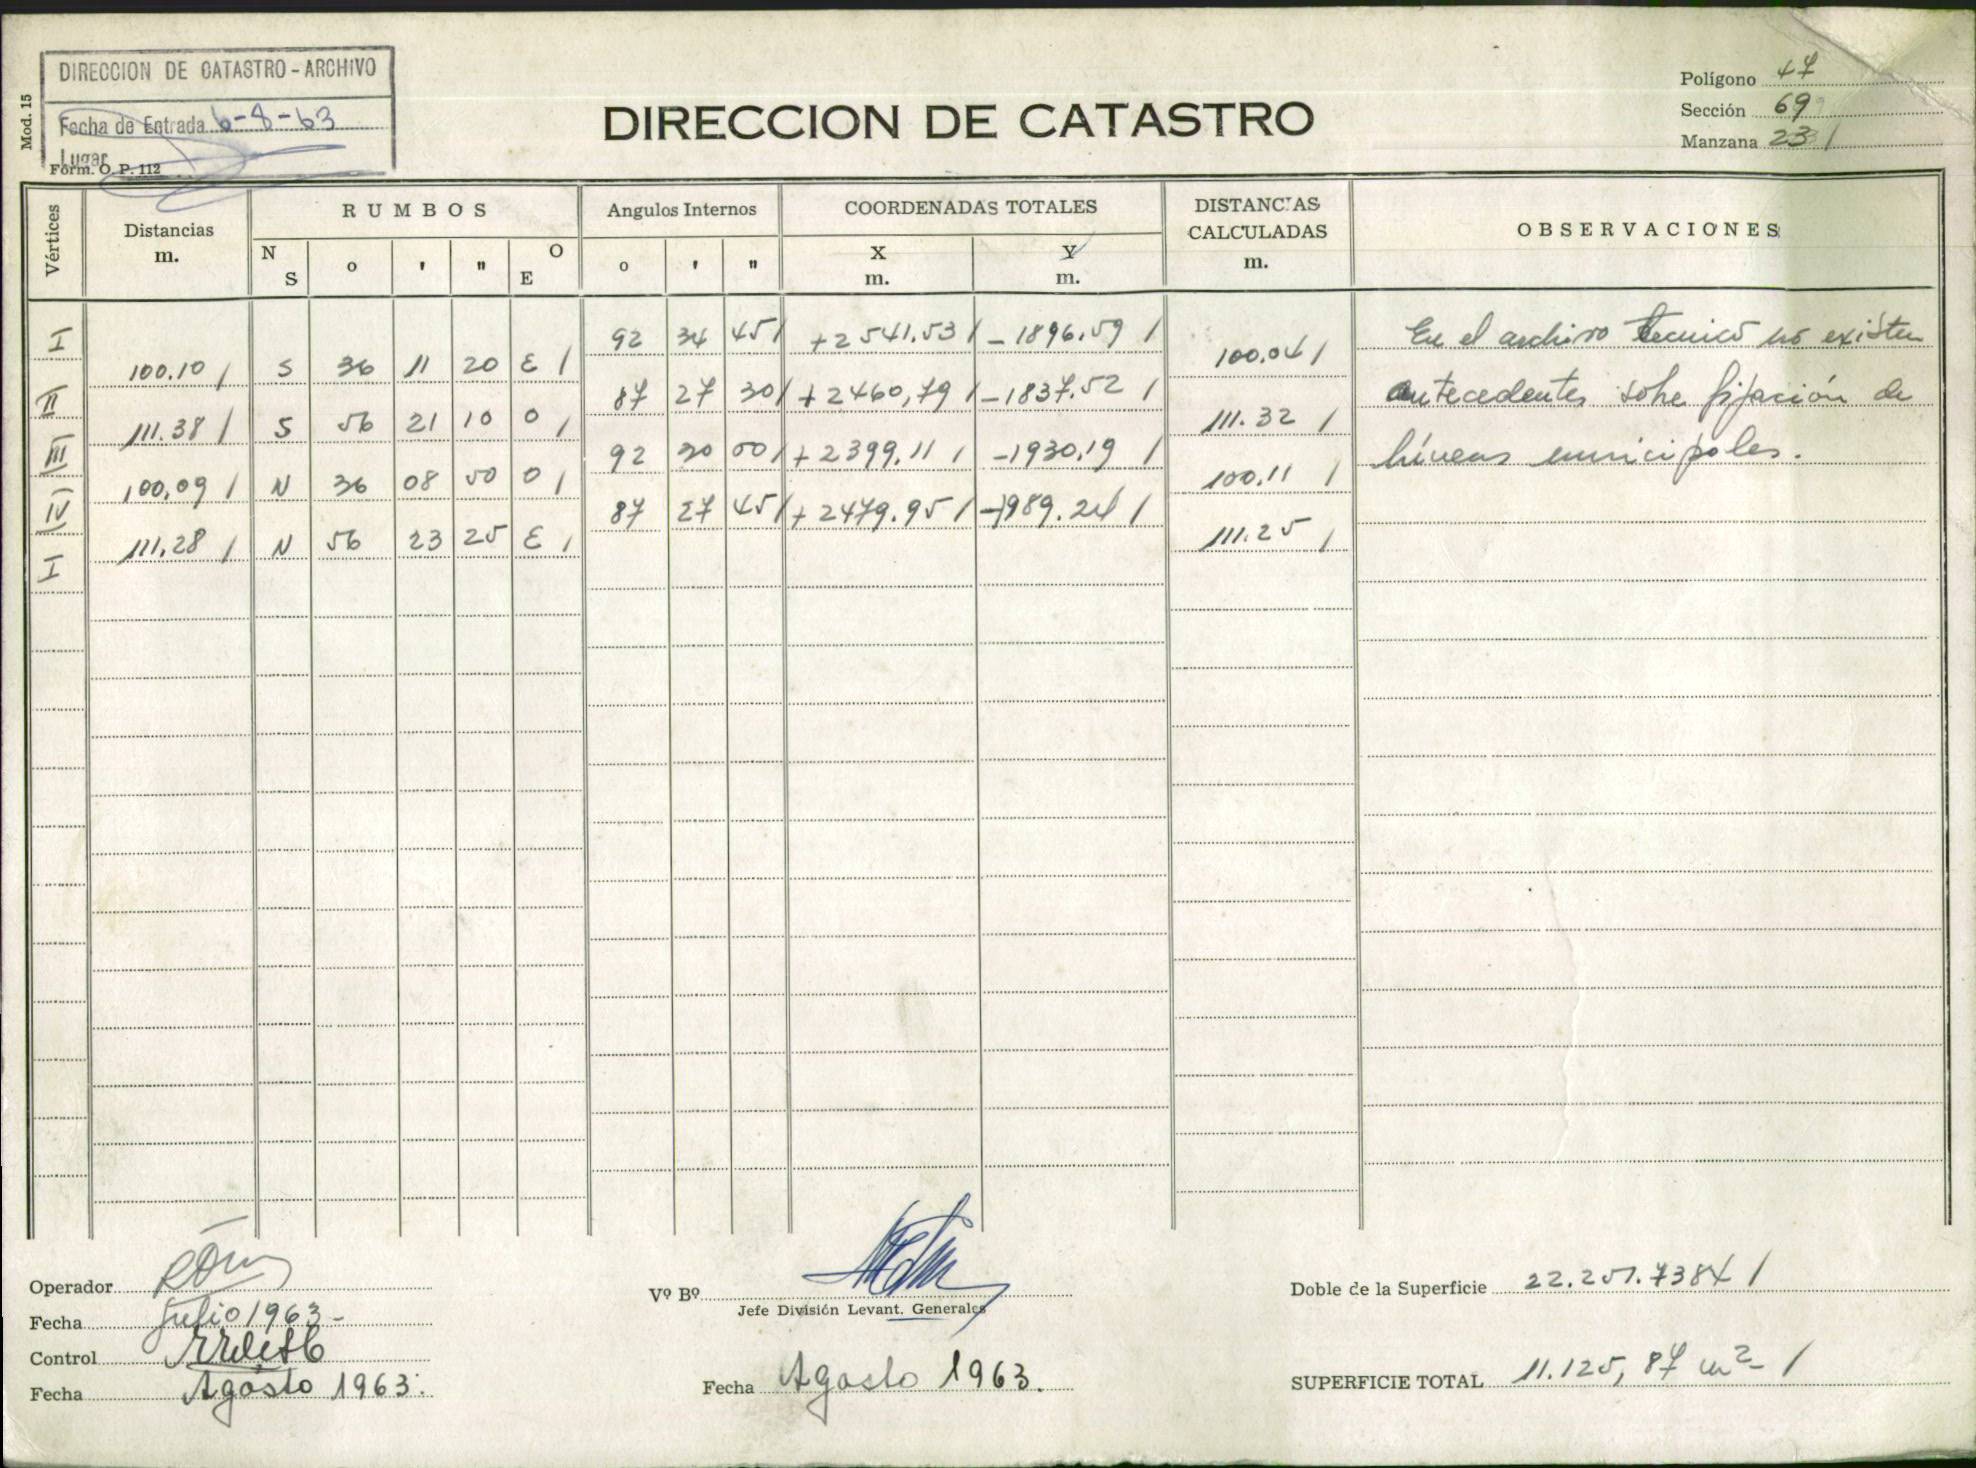 DIRECCION DE CATASTRO - ARCHIVO
Fecha de Entrada 6-8-63
Lugar
Mod. 15
Form. O. P. 112
DIRECCION DE CATASTRO
Polígono 47
Sección 69
Manzana 23 /
Vértices
Distancias m.
RUMBOS
N S o ' " O E
Angulos Internos
o ' "
COORDENADAS TOTALES
X m.
Y m.
DISTANCIAS CALCULADAS m.
OBSERVACIONES
I 92 34 45 / +2541.53 / -1896.59 /
100.10 / S 36 11 20 E / 100.04 /
II 87 27 30 / +2460,79 / -1837.52 /
111.38 / S 56 21 10 O / 111.32 /
III 92 30 00 / +2399.11 / -1930.19 /
100,09 / N 36 08 50 O / 100.11 /
IV 87 27 45 / +2479.95 / -1989.24 /
111.28 / N 56 23 25 E / 111.25 /
I
En el archivo tecnico no existen
antecedentes sobre fijación de
líneas municipales.
Operador
Fecha Julio 1963-
Control
Fecha Agosto 1963.
Vº Bº
Jefe División Levant. Generales
Fecha Agosto 1963.
Doble de la Superficie 22.251.7384 /
SUPERFICIE TOTAL 11.125,87 m2- /